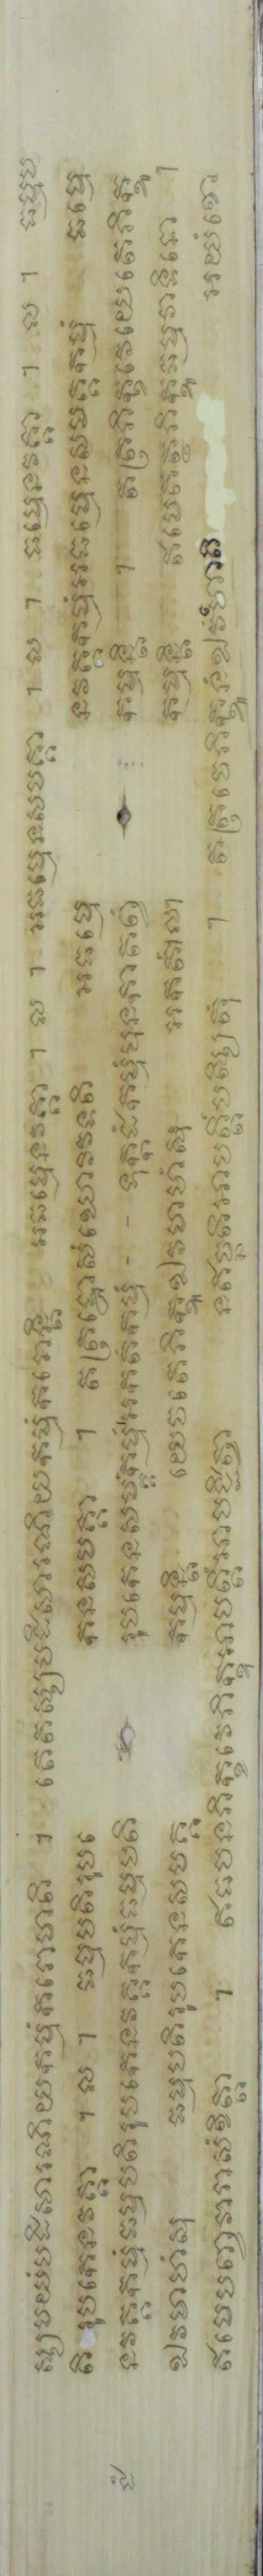 ស្សបយំបដិសារណិយកម្មំករោហតិ ។ តេតស្សបដិសារណិយកម្មំករោន្តិ អធម្មេនវគ្គា ។ ល ។ អធម្មេនសមគ្គា ។ ល ។ ធម្មេនវគ្គា ។ ល ។ ធម្មប
តិរូបកេនវគ្គា ។ ល ។ ធម្មបតិរូបកេនសមគ្គា ។ តត្រដ្ឋោសំឃោវិវទតិ អធម្មេនវគ្គកម្មំអធម្មេនសមគ្គកម្មំ ធម្មេ
នវគ្គកម្មំធម្មបតិរូបកេនវគ្គកម្មំធម្មបតិរូបកេនសមគ្គកម្មំអកតំកម្មំ - - ទុក្កដំកម្មំបុនកាតព្វំ កម្មន្តិ ។ តត្រភិក្ខវេយេតេភិក្ខូ
ឯវមាហំសុ ធម្មបតិរូបកេនសមគ្គ កម្មន្តិ យេចតេភិក្ខូឯវមាហំសុ អកតំ។ល។ កម្មន្តិ ឥមេតត្ថភិក្ខូធម្មវាទិនោ ។
ឥមេបញ្ចវារាសំខិត្តា ។ ឥធបនភិក្ខវេភិក្ខុអាបត្តិំអាបជ្ជិត្វា នឥច្ឆតិអាបត្តិំបស្សិតុំ ។ តត្រចេភិក្ខូនំឯវំហោតិ អយំខោ